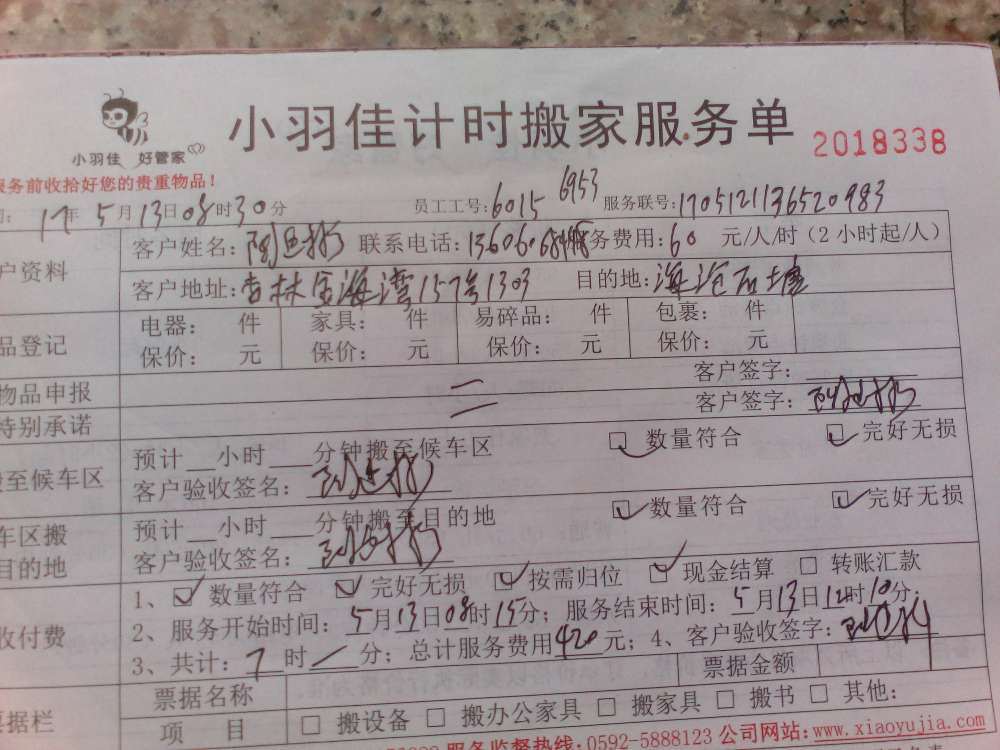 小羽佳计时搬家服务单
2018338
小羽佳 好管家
服务前收拾好您的贵重物品！
17年5月13日08时30分 员工工号:6015 6953 服务联号:1705121136520983
客户姓名: 联系电话:1360606 务费用:60 元/人/时（2小时起/人）
户资料
客户地址:杏林金海湾157号1303 目的地:海沧石塘
品登记
电器： 件 家具： 件 易碎品： 件 包裹： 件
保价： 元 保价： 元 保价： 元 保价： 元
物品申报 客户签字：
特别承诺 客户签字：
至候车区 预计 小时 分钟搬至候车区 数量符合 完好无损
客户验收签名：
车区搬 预计 小时 分钟搬至目的地 数量符合 完好无损
目的地 客户验收签名：
1、 数量符合 完好无损 按需归位 现金结算 转账汇款
收付费 2、服务开始时间：5月13日08时15分；服务结束时间：5月13日12时10分；
3、共计：7时/分；总计服务费用420元；4、客户验收签字：
票据栏 票据名称 票据金额
项 目 搬设备 搬办公家具 搬家具 搬书 其他：
服务监督热线:0592-5888123 公司网站:www.xiaoyujia.com